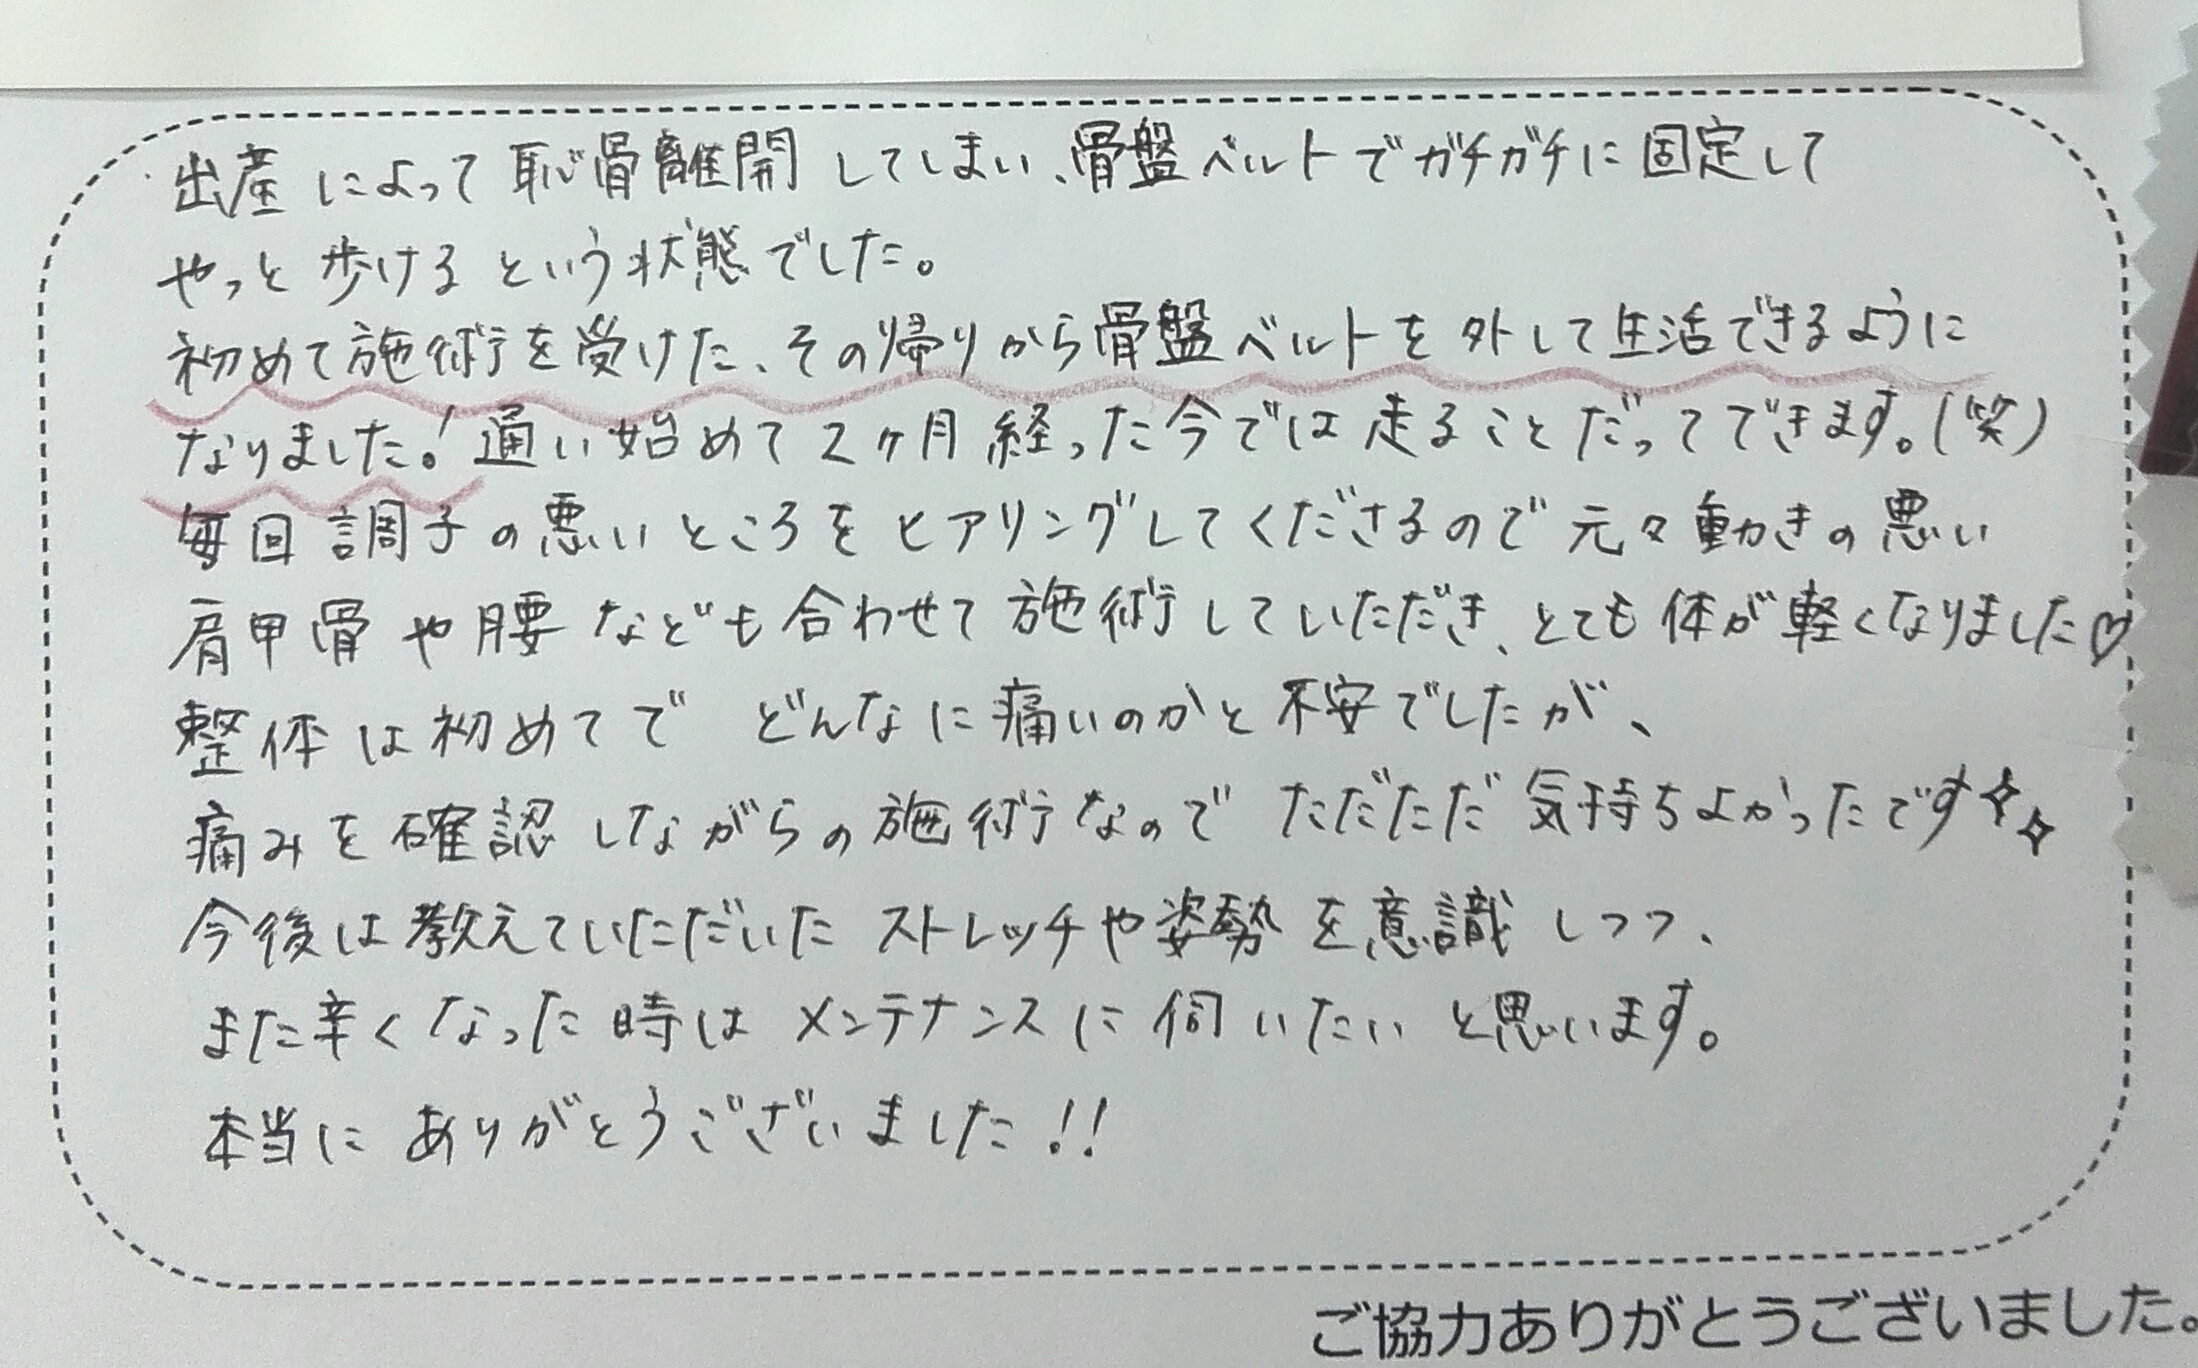 出産によって恥骨離開してしまい、骨盤ベルトでガチガチに固定して
やっと歩けるという状態でした。
初めて施術を受けた、その帰りから骨盤ベルトを外して生活できるように
なりました!通い始めて2ヶ月経った今では走ることだってできます。(笑)
毎回調子の悪いところをヒアリングしてくださるので元々動きの悪い
肩甲骨や腰なども合わせて施術していただき、とても体が軽くなりました♡
整体は初めてで どんなに痛いのかと不安でしたが、
痛みを確認しながらの施術なので ただただ気持ちよかったです✧✧
今後は教えていただいたストレッチや姿勢を意識しつつ、
また辛くなった時はメンテナンスに伺いたいと思います。
本当にありがとうございました!!
ご協力ありがとうございました。